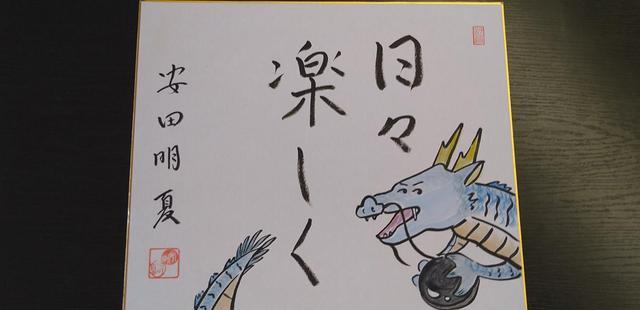 日々
楽しく
安田明夏